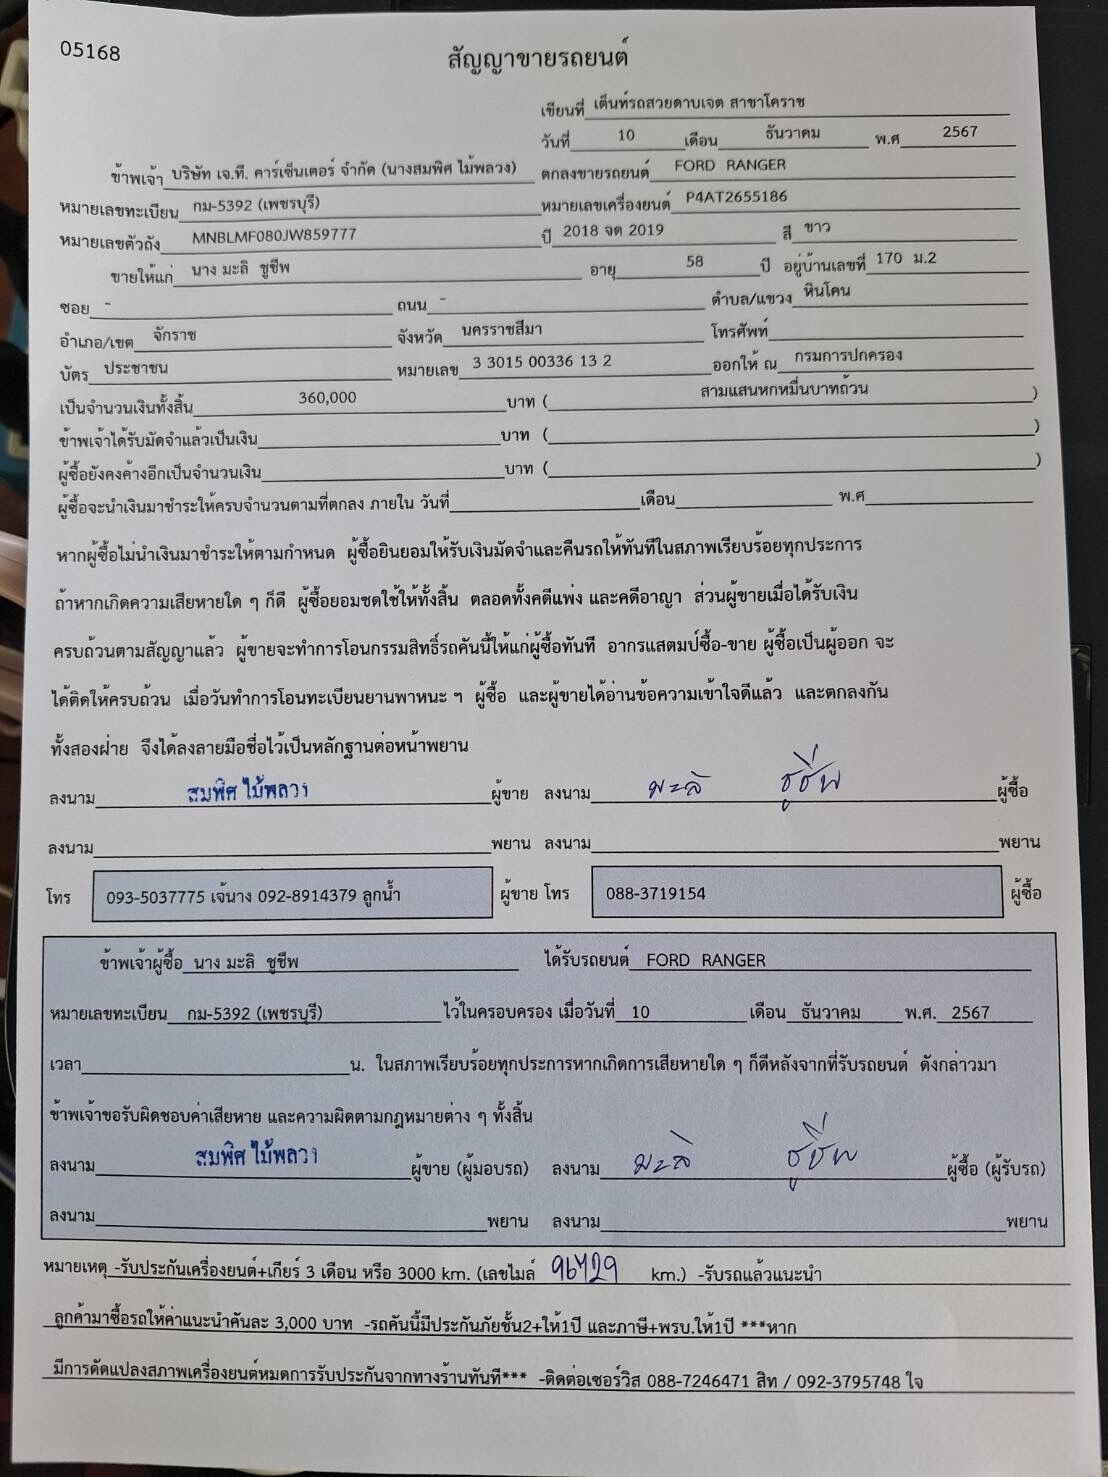 05168
สัญญาขายรถยนต์
เขียนที่ เต็นท์รถสวยดาบเจต สาขาโคราช
วันที่ 10 เดือน ธันวาคม พ.ศ 2567
ข้าพเจ้า บริษัท เจ.ที. คาร์เซ็นเตอร์ จำกัด (นางสมพิศ ไม้พลวง) ตกลงขายรถยนต์ FORD RANGER
หมายเลขทะเบียน กม-5392 (เพชรบุรี) หมายเลขเครื่องยนต์ P4AT2655186
หมายเลขตัวถัง MNBLMF080JW859777 ปี 2018 จด 2019 สี ขาว
ขายให้แก่ นาง มะลิ ชูชีพ อายุ 58 ปี อยู่บ้านเลขที่ 170 ม.2
ซอย - ถนน - ตำบล/แขวง หินโคน
อำเภอ/เขต จักราช จังหวัด นครราชสีมา โทรศัพท์
บัตร ประชาชน หมายเลข 3 3015 00336 13 2 ออกให้ ณ กรมการปกครอง
เป็นจำนวนเงินทั้งสิ้น 360,000 บาท ( สามแสนหกหมื่นบาทถ้วน )
ข้าพเจ้าได้รับมัดจำแล้วเป็นเงิน บาท ( )
ผู้ซื้อยังคงค้างอีกเป็นจำนวนเงิน บาท ( )
ผู้ซื้อจะนำเงินมาชำระให้ครบจำนวนตามที่ตกลง ภายใน วันที่ เดือน พ.ศ
หากผู้ซื้อไม่นำเงินมาชำระให้ตามกำหนด ผู้ซื้อยินยอมให้รับเงินมัดจำและคืนรถให้ทันทีในสภาพเรียบร้อยทุกประการ
ถ้าหากเกิดความเสียหายใด ๆ ก็ดี ผู้ซื้อยอมชดใช้ให้ทั้งสิ้น ตลอดทั้งคดีแพ่ง และคดีอาญา ส่วนผู้ขายเมื่อได้รับเงิน
ครบถ้วนตามสัญญาแล้ว ผู้ขายจะทำการโอนกรรมสิทธิ์รถคันนี้ให้แก่ผู้ซื้อทันที อากรแสตมป์ซื้อ-ขาย ผู้ซื้อเป็นผู้ออก จะ
ได้ติดให้ครบถ้วน เมื่อวันทำการโอนทะเบียนยานพาหนะ ฯ ผู้ซื้อ และผู้ขายได้อ่านข้อความเข้าใจดีแล้ว และตกลงกัน
ทั้งสองฝ่าย จึงได้ลงลายมือชื่อไว้เป็นหลักฐานต่อหน้าพยาน
ลงนาม สมพิศ ไม้พลวง ผู้ขาย ลงนาม มะลิ ชูชีพ ผู้ซื้อ
ลงนาม พยาน ลงนาม พยาน
โทร 093-5037775 เจ้นาง 092-8914379 ลูกน้ำ ผู้ขาย โทร 088-3719154 ผู้ซื้อ
ข้าพเจ้าผู้ซื้อ นาง มะลิ ชูชีพ ได้รับรถยนต์ FORD RANGER
หมายเลขทะเบียน กม-5392 (เพชรบุรี) ไว้ในครอบครอง เมื่อวันที่ 10 เดือน ธันวาคม พ.ศ. 2567
เวลา น. ในสภาพเรียบร้อยทุกประการหากเกิดการเสียหายใด ๆ ก็ดีหลังจากที่รับรถยนต์ ดังกล่าวมา
ข้าพเจ้าขอรับผิดชอบค่าเสียหาย และความผิดตามกฎหมายต่าง ๆ ทั้งสิ้น
ลงนาม สมพิศ ไม้พลวง ผู้ขาย (ผู้มอบรถ) ลงนาม มะลิ ชูชีพ ผู้ซื้อ (ผู้รับรถ)
ลงนาม พยาน ลงนาม พยาน
หมายเหตุ -รับประกันเครื่องยนต์+เกียร์ 3 เดือน หรือ 3000 km. (เลขไมล์ km.) -รับรถแล้วแนะนำ
ลูกค้ามาซื้อรถให้ค่าแนะนำคันละ 3,000 บาท -รถคันนี้มีประกันภัยชั้น2+ให้1ปี และภาษี+พรบ.ให้1ปี ***หาก
มีการดัดแปลงสภาพเครื่องยนต์หมดการรับประกันจากทางร้านทันที*** -ติดต่อเซอร์วิส 088-7246471 สิท / 092-3795748 ใจ